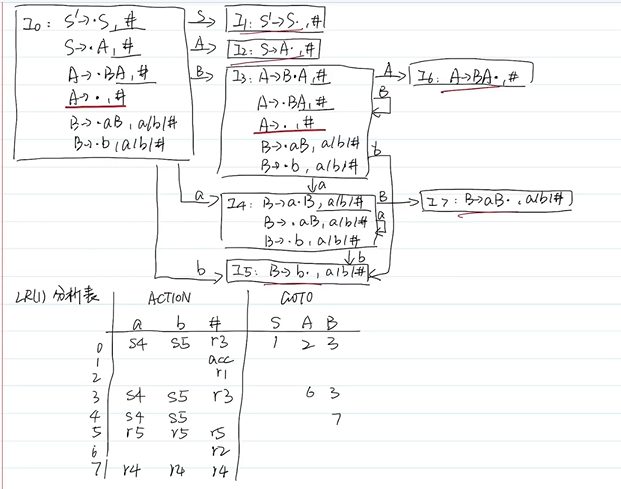 I0: S'→·S, #
S→·A, #
A→·BA, #
A→·, #
B→·aB, a/b/#
B→·b, a/b/#
S
I1: S'→S·, #
A
I2: S→A·, #
B
I3: A→B·A, #
A→·BA, #
A→·, #
B→·aB, a/b/#
B→·b, a/b/#
A
I6: A→BA·, #
B
b
a
a
I4: B→a·B, a/b/#
B→·aB, a/b/#
B→·b, a/b/#
B
a
I7: B→aB·, a/b/#
b
b
I5: B→b·, a/b/#
LR(1) 分析表 ACTION GOTO
a b # S A B
0 s4 s5 r3 1 2 3
1 acc
2 r1
3 s4 s5 r3 6 3
4 s4 s5 7
5 r5 r5 r5
6 r2
7 r4 r4 r4